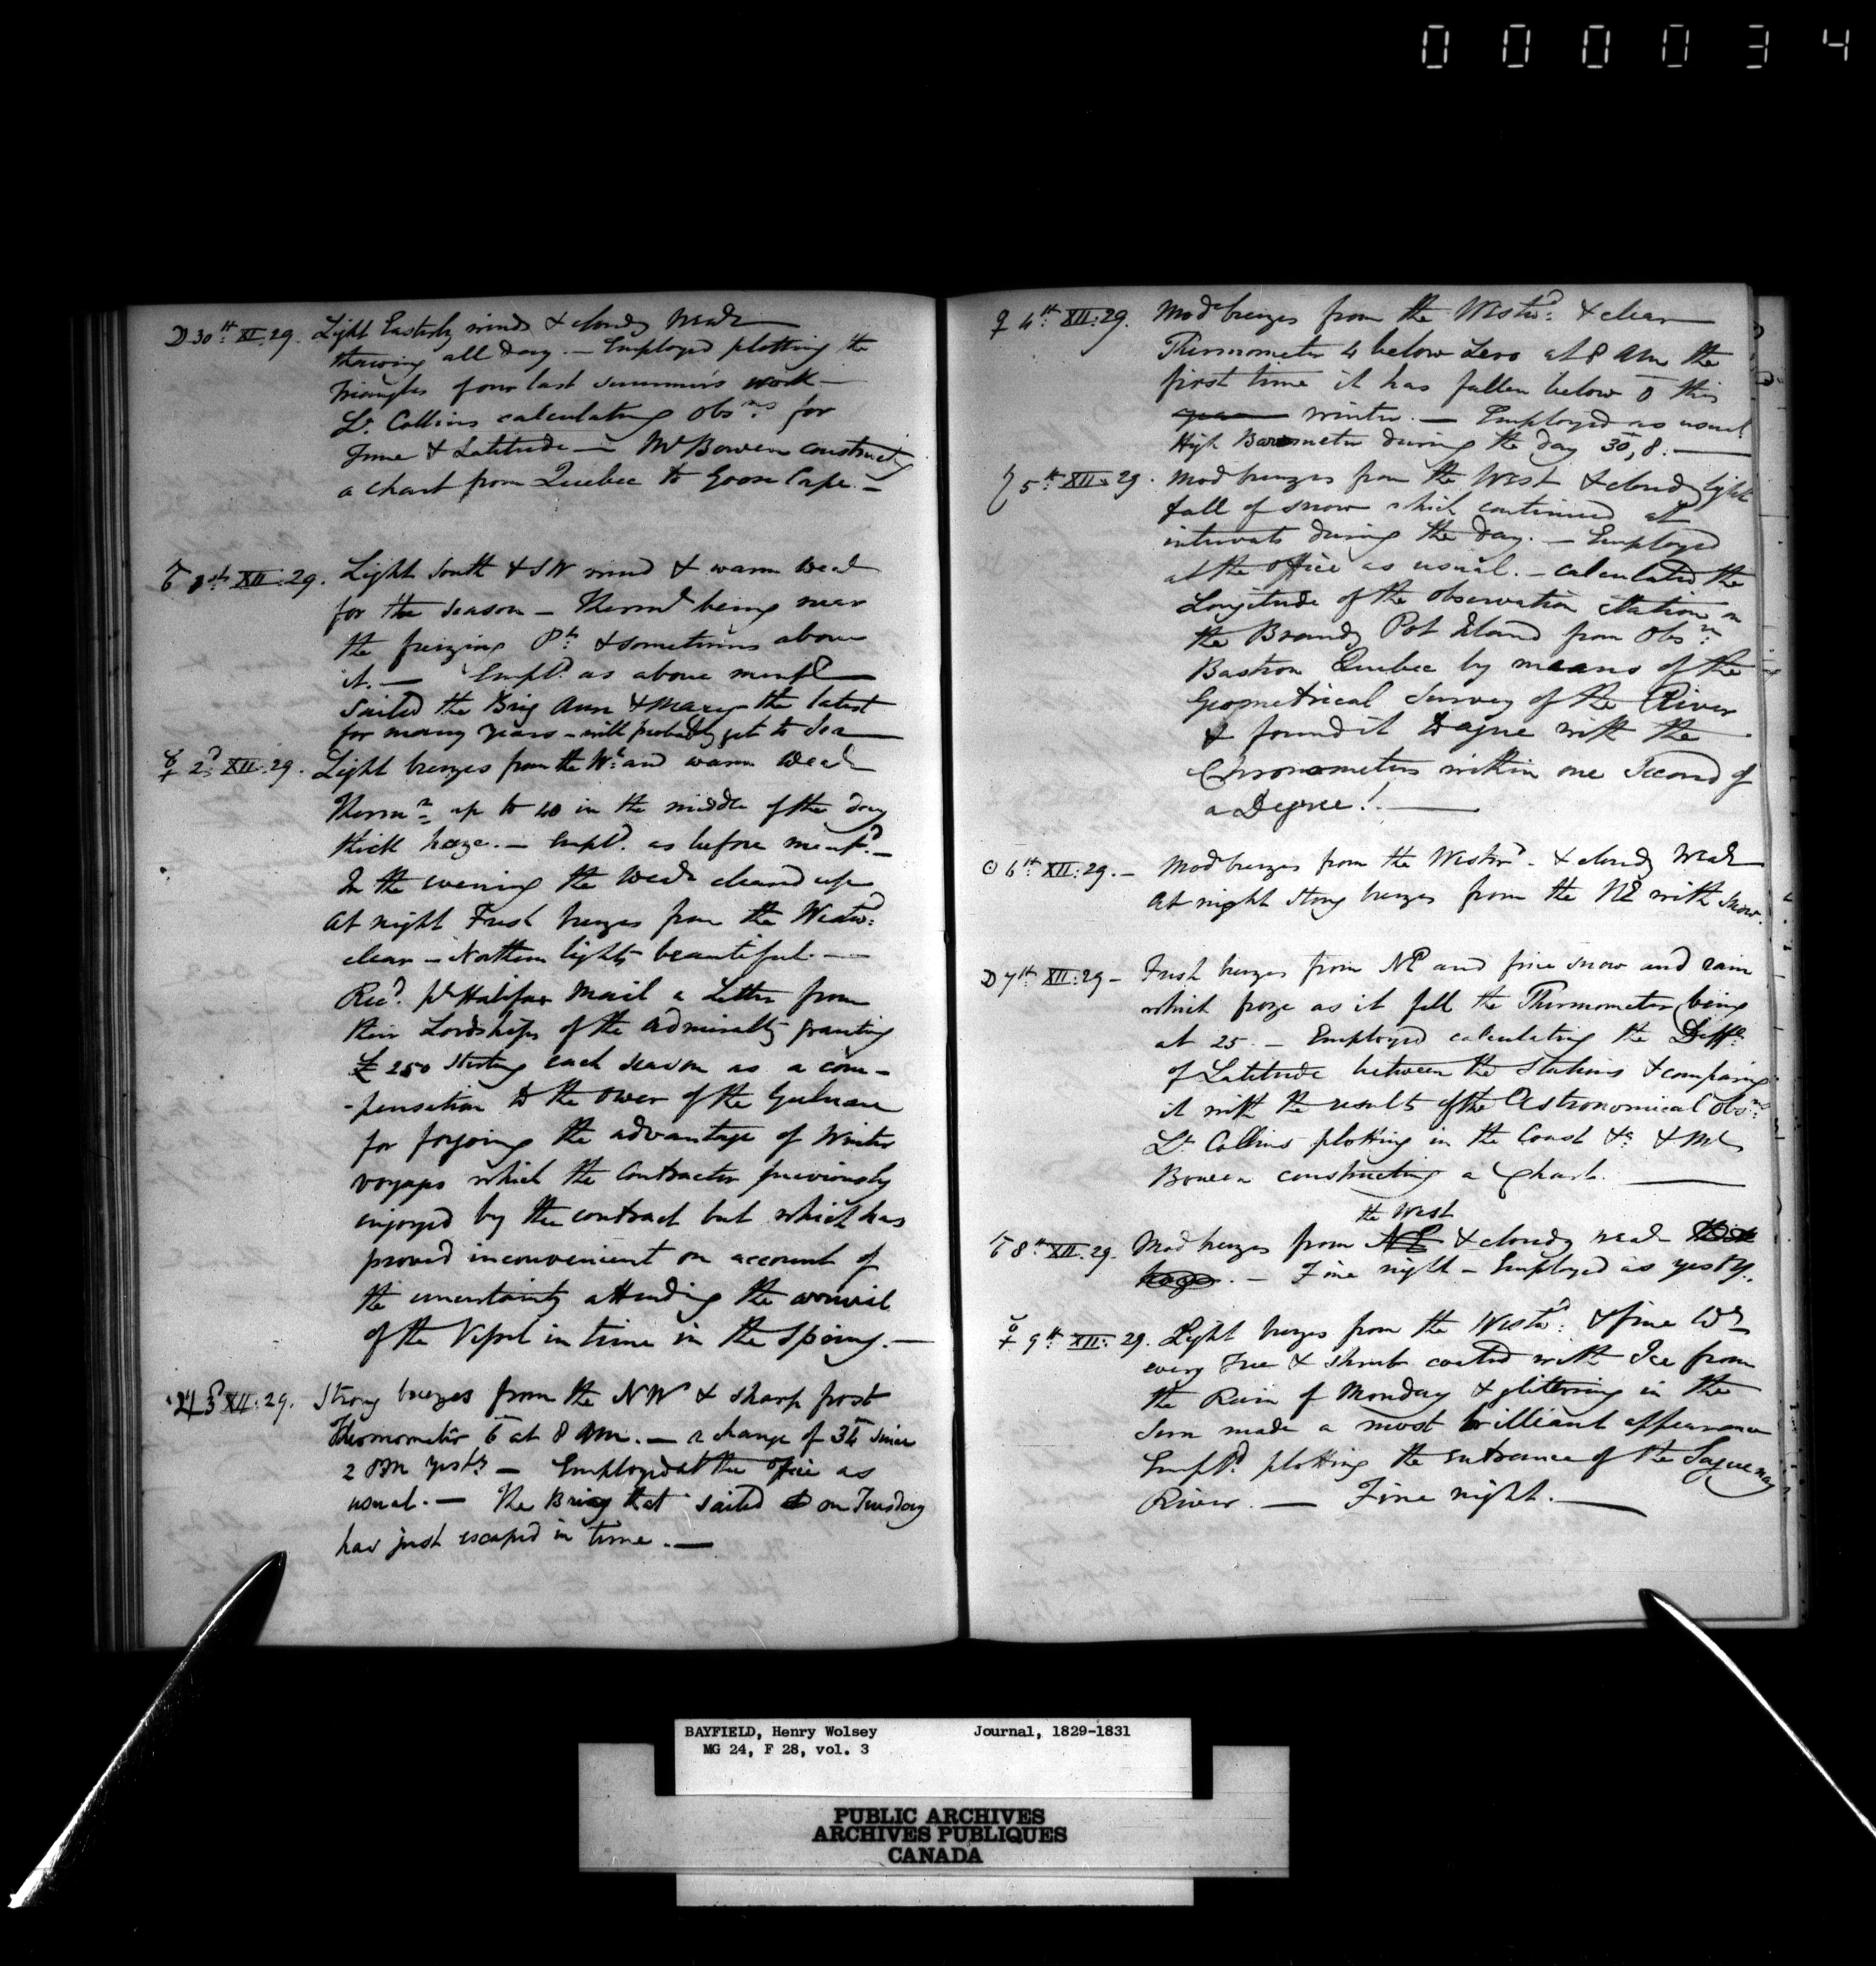 000034
☽ 30th XI: 29. Light Easterly winds & cloudy Weatr
thawing all day. — Employed plotting the
triangles of our last summer's work —
Lt. Collins calculating Obsns for
Time & Latitude — Mr Bowen constructg
a chart from Quebec to Goose Cape. —
♂ 1st XII: 29. Light South & SW wind & warm Weatr
for the season — Thermr being near
the freizing Pt. & sometimes above
it. — Empld. as above mentd
Sailed the Brig Ann & Mary the latest
for many years — will probably get to Sea
☿ 2d XII: 29. Light breezes from the Wt. and warm Weatr
Thermr up to 40 in the middle of the day
thick haze. — Empld. as before mentd. —
In the evening the Weatr cleared up
at night Fresh breezes from the Westwd:
clear — Northern lights beautiful. —
Recd. pr Halifax Mail a Letter from
their Lordships of the Admiralty granting
£250 Sterling each season as a com-
-pensation to the owner of the Gulnare
for forgoing the advantage of Winter
voyages which the Contractor previously
enjoyed by the contract but which has
proved inconvenient on account of
the uncertainty attending the arrival
of the Vessel in time in the Spring. —
♃ 3d XII: 29. Strong breezes from the NW & sharp frost
Thermometer 6 at 8 AM. — a change of 34 since
2 PM yesty — Employed at the office as
usual. — The Brig that sailed on Tuesday
has just escaped in time. —
♀ 4th XII: 29. Mod breezes from the Westwd: & clear
Thermometer 4 below Zero at 8 AM the
first time it has fallen below 0 this
year winter. — Employed as usual
High Barometer during the day 30,8. —
♄ 5th XII: 29. Mod breezes from the West & cloudy light
fall of snow which continued at
intervals during the day. — Employed
at the office as usual. — calculated the
Longitude of the observation Station on
the Brandy Pot Island from Obsn:
Bastion Quebec by means of the
Geometrical Survey of the River
& found it to agree with the
Chronometers within one Second of
a Degree! —
☉ 6th XII: 29. — Mod breezes from the Westwd. & cloudy Weatr
at night strong breezes from the NE with snow.
☽ 7th XII: 29 — Fresh breezes from NE and fine snow and rain
which froze as it fell the Thermometer being
at 25. — Employed calculating the Diffce
of Latitude between the Stations & comparing
it with the results of the Astronomical Obsns:
Lt Collins plotting in the Coast &c & Mr
Bowen constructing a Chart. —
the West
♂ 8th XII: 29. Mod breezes from NE & cloudy weatr thick
haze. — Fine night — Employed as yesty.
☿ 9th XII: 29. Light breezes from the Westwd: & fine Wr
every Tree & shrub coated with Ice from
the Rain of Monday & glittering in the
Sun made a most brilliant appearance
Empld. plotting the entrance of the Saguenay
River. — Fine night. —
BAYFIELD, Henry Wolsey Journal, 1829-1831
MG 24, F 28, vol. 3
PUBLIC ARCHIVES
ARCHIVES PUBLIQUES
CANADA